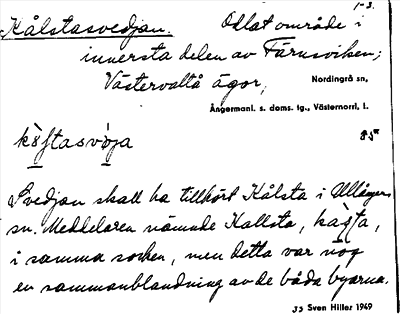 1-3.
Kålstasvedjan. Odlat område i
innersta delen av Färnsviken;
Västervåltå ägor,
Nordingrå sn,
Ångermanl. s. doms. tg., Västernorrl. l.
85
Svedjan skall ha tillhört Kålsta i Ullångers
sn. Meddelaren nämnde Kallsta,
i samma socken, men detta var nog
en sammanblandning av de båda byarna.
Sven Hiller 1949